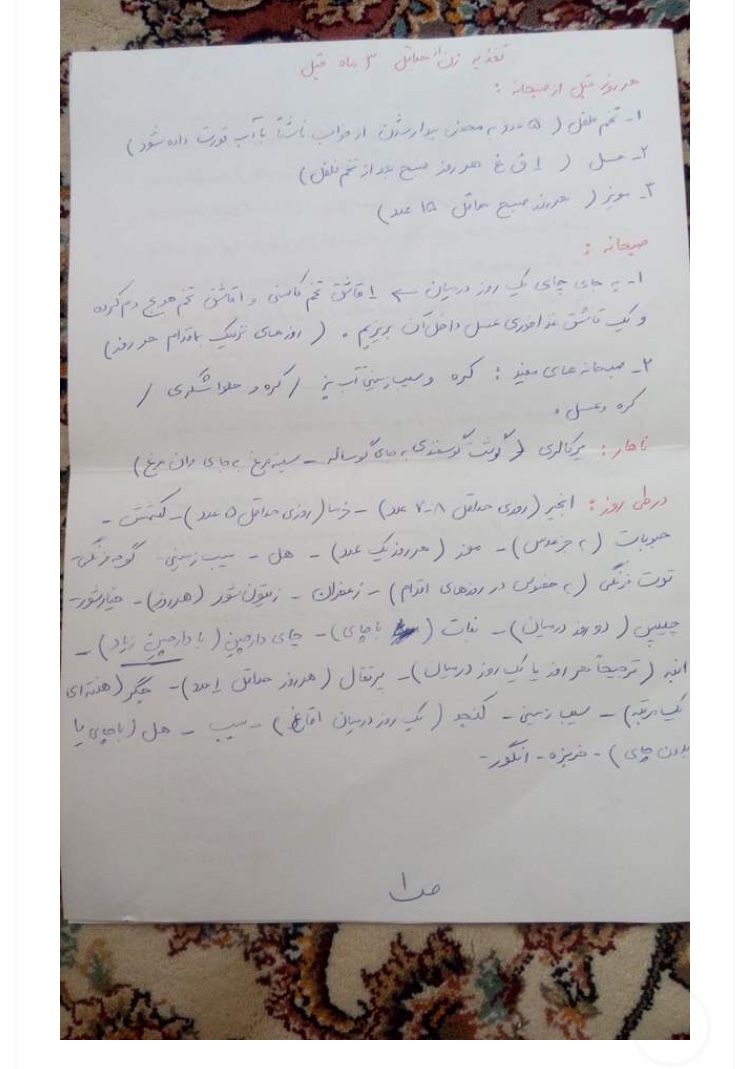 تغذیه زن از حداقل ۳ ماه قبل
هر روز قبل از صبحانه :
۱- تخم فلفل ( ۵ عدد به محض بیدار شدن از خواب ناشتا با آب قورت داده شود )
۲- عسل ( ۱ ق غ هر روز صبح بعد از تخم فلفل )
۳- مویز ( هر روز صبح حداقل ۱۵ عدد )
صبحانه :
۱- به جای چای یک روز درمیان ← ۱ قاشق تخم کاسنی و ۱ قاشق تخم هویج دم کرده
و یک قاشق غذاخوری عسل داخل آن بریزیم . ( روزهای نزدیک به اقدام هر روز )
۲- صبحانه های مفید : کره و سیب زمینی آب پز / کره و حلوا شکری /
کره و عسل .
ناهار : پرکالری ( گوشت گوسفندی به جای گوساله - سینه مرغ به جای ران مرغ )
در طی روز : انجیر ( روزی حداقل ۸-۷ عدد ) - خرما ( روزی حداقل ۵ عدد ) - کشمش -
حبوبات ( به جز عدس ) - موز ( هر روز یک عدد ) - هل - سیب زمینی - گوجه فرنگی -
توت فرنگی ( به خصوص در روزهای اقدام ) - زعفران - زیتون شور ( هر روز ) - خیارشور -
چیپس ( دو روز درمیان ) - نبات ( با چای ) - چای دارچین ( با دارچین زیاد ) -
انبه ( ترجیحاً هر روز یا یک روز درمیان ) - پرتقال ( هر روز حداقل ۱ عدد ) - جگر ( هفته ای
یک مرتبه ) - سیب زمینی - کنجد ( یک روز درمیان ۱ ق غ ) - سیب - هل ( با چای یا
بدون چای ) - خربزه - انگور -
ص ۱